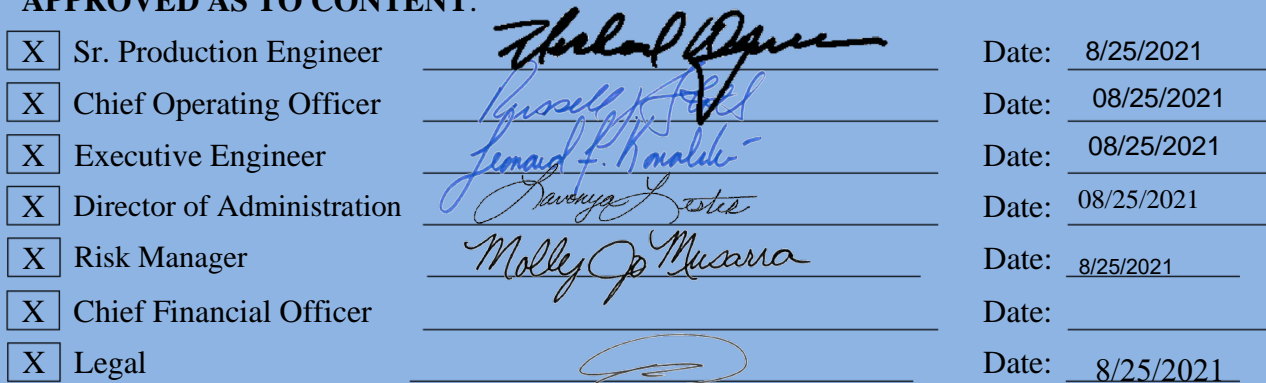 APPROVED AS TO CONTENT:
X Sr. Production Engineer Date: 8/25/2021
X Chief Operating Officer Russell Date: 08/25/2021
X Executive Engineer Date: 08/25/2021
X Director of Administration Lavonya Lester Date: 08/25/2021
X Risk Manager Molly Jo Musarra Date: 8/25/2021
X Chief Financial Officer Date:
X Legal Date: 8/25/2021